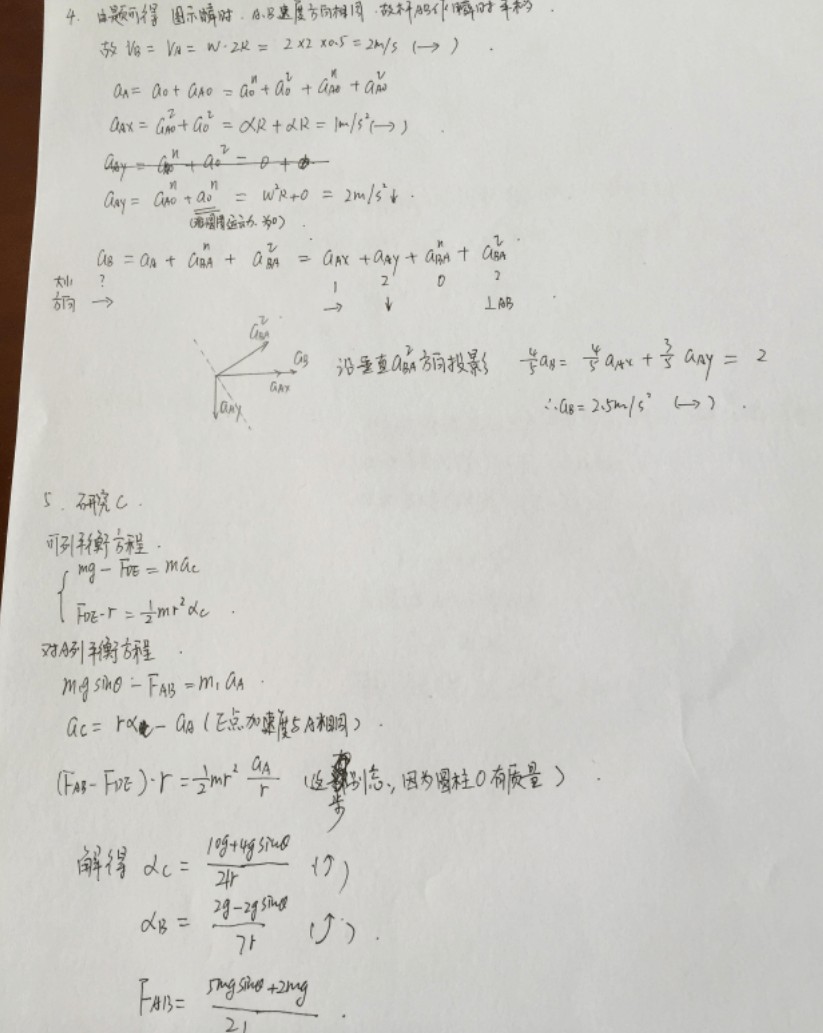 4. 由题可得 图示瞬时, A.B速度方向相同 故杆AB作瞬时平移.
故 VB = VA = W·2R = 2×2×0.5 = 2m/s (→) .
aA = a0 + aA0 = a0^n + a0^τ + aA0^n + aA0^τ
aAX = aA0^τ + a0^τ = αR + αR = 1m/s² (→) .
aAY = aA0^n + a0^n = W²R+0 = 2m/s² ↓ .
aB = aA + aBA^n + aBA^τ = aAX + aAY + aBA^n + aBA^τ
大小 ? 1 2 0 ?
方向 → → ↓ ⊥AB .
aBA^τ
aB
aAX
aAY
沿垂直aBA^τ方向投影 4/5 aB = 4/5 aAX + 3/5 aAY = 2
∴ aB = 2.5m/s² (→) .
5. 研究C .
可列平衡方程 .
mg - FDE = maC
FDE·r = 1/2 mr²αC .
对A列平衡方程 .
mg sinθ - FAB = m, aA .
aC = rα - aA (E点加速度与A相同) .
(FAB - FDE)·r = 1/2 mr² aA/r (这步别忘, 因为圆柱O有质量) .
解得 αC = (10g+4g sinθ)/21r (↑)
αB = (2g-2g sinθ)/7r (↑) .
FAB = (5mg sinθ+2mg)/21 .